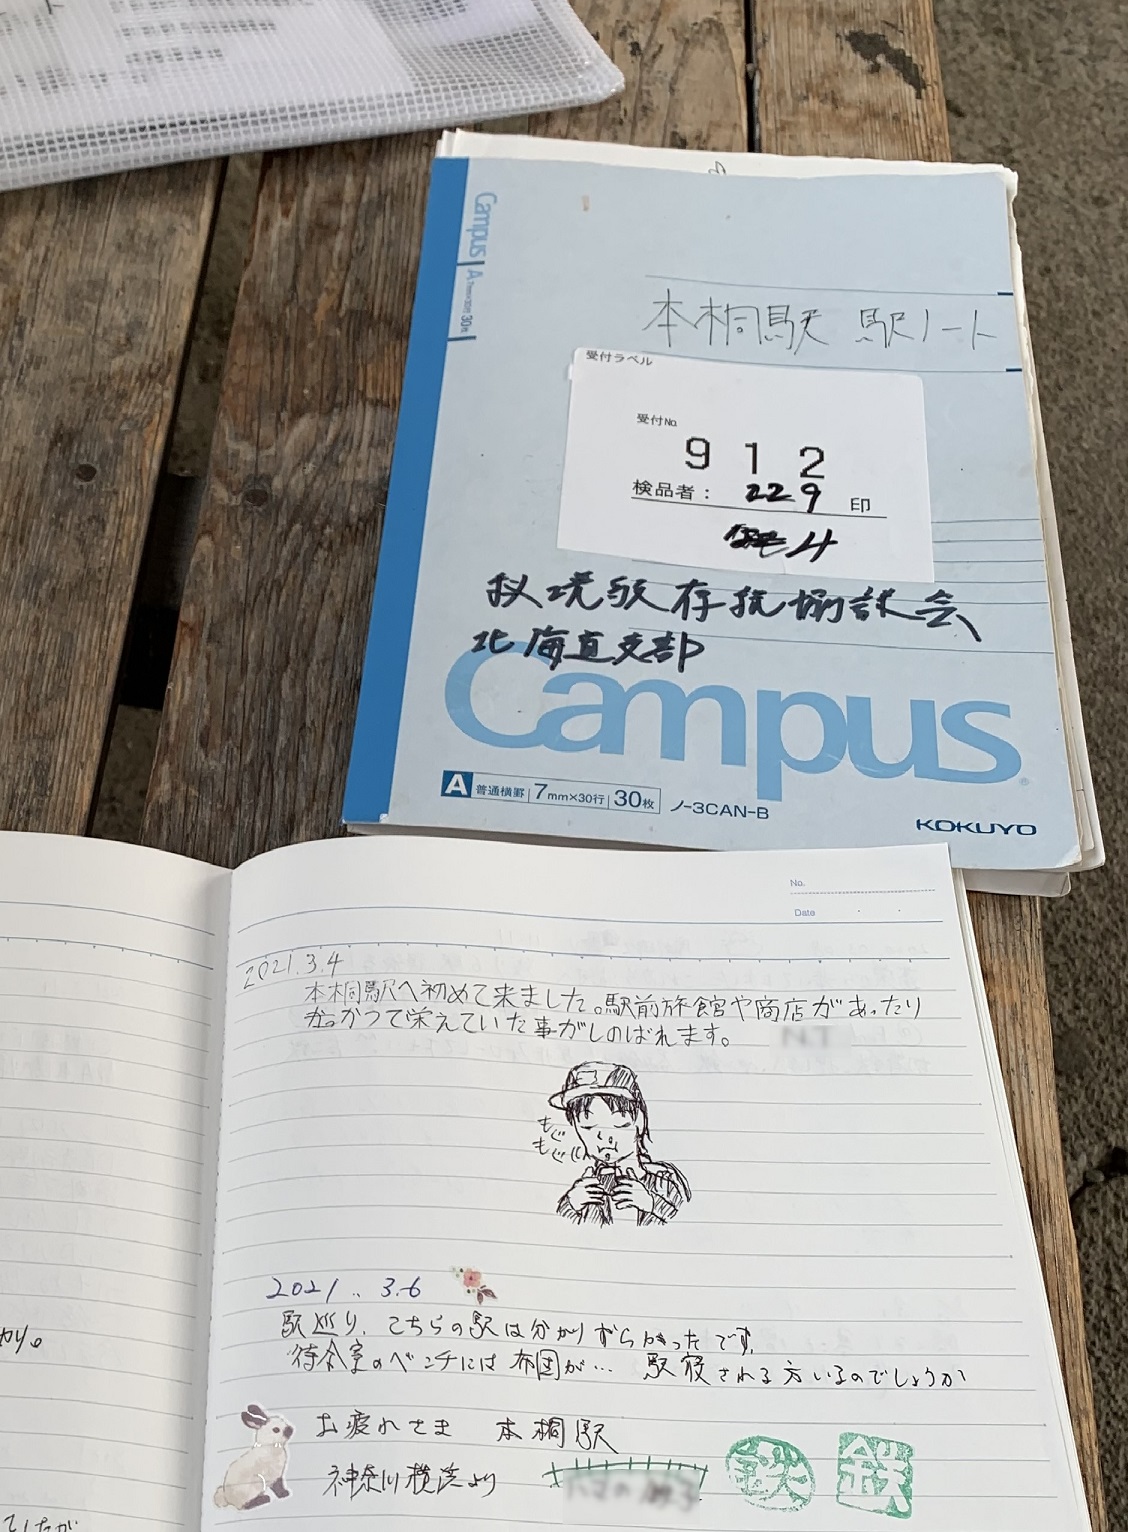 Campus
A 7mm×30行 30枚
本桐駅 駅ノート
受付ラベル
受付No.
912
検品者: 229 印
秘境駅存続協議会
北海道支部
Campus
A 普通横罫 7mm×30行 30枚 ノ-3CAN-B
KOKUYO
No.
Date
2021.3.4
本桐駅へ初めて来ました。駅前旅館や商店があったり
かつて栄えていた事がしのばれます。 N.T
もぐ
もぐ
2021..3.6
駅巡り、こちらの駅は分かりずらかったです。
待合室のベンチには布団が… 駅寝される方いるのでしょうか
お疲れさま 本桐駅
神奈川横浜より
鉄 鉄
かり。
ていたが